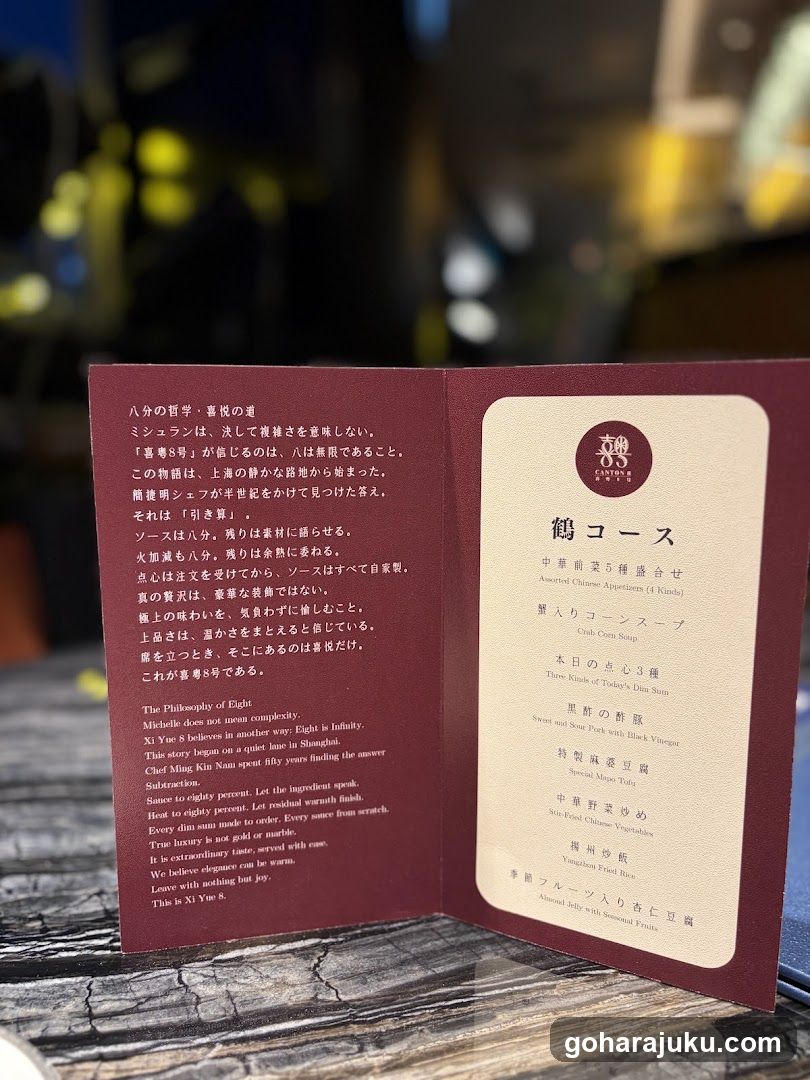 八分の哲学・喜悦の道
ミシュランは、決して複雑さを意味しない。
「喜粤8号」が信じるのは、八は無限であること。
この物語は、上海の静かな路地から始まった。
簡捷明シェフが半世紀をかけて見つけた答え。
それは「引き算」。
ソースは八分。残りは素材に語らせる。
火加減も八分。残りは余熱に委ねる。
点心は注文を受けてから、ソースはすべて自家製。
真の贅沢は、豪華な装飾ではない。
極上の味わいを、気負わずに愉しむこと。
上品さは、温かさをまとえると信じている。
席を立つとき、そこにあるのは喜悦だけ。
これが喜粤8号である。
The Philosophy of Eight
Michelle does not mean complexity.
Xi Yue 8 believes in another way: Eight is Infinity.
This story began on a quiet lane in Shanghai.
Chef Ming Kin Nam spent fifty years finding the answer
Subtraction.
Sauce to eighty percent. Let the ingredient speak.
Heat to eighty percent. Let residual warmth finish.
Every dim sum made to order. Every sauce from scratch.
True luxury is not gold or marble.
It is extraordinary taste, served with ease.
We believe elegance can be warm.
Leave with nothing but joy.
This is Xi Yue 8.
CANTON 8
喜粤8号
鶴コース
中華前菜5種盛合せ
Assorted Chinese Appetizers (4 Kinds)
蟹入りコーンスープ
Crab Corn Soup
本日の点心3種
Three Kinds of Today's Dim Sum
黒酢の酢豚
Sweet and Sour Pork with Black Vinegar
特製麻婆豆腐
Special Mapo Tofu
中華野菜炒め
Stir-Fried Chinese Vegetables
揚州炒飯
Yangzhou Fried Rice
季節フルーツ入り杏仁豆腐
Almond Jelly with Seasonal Fruits
goharajuku.com